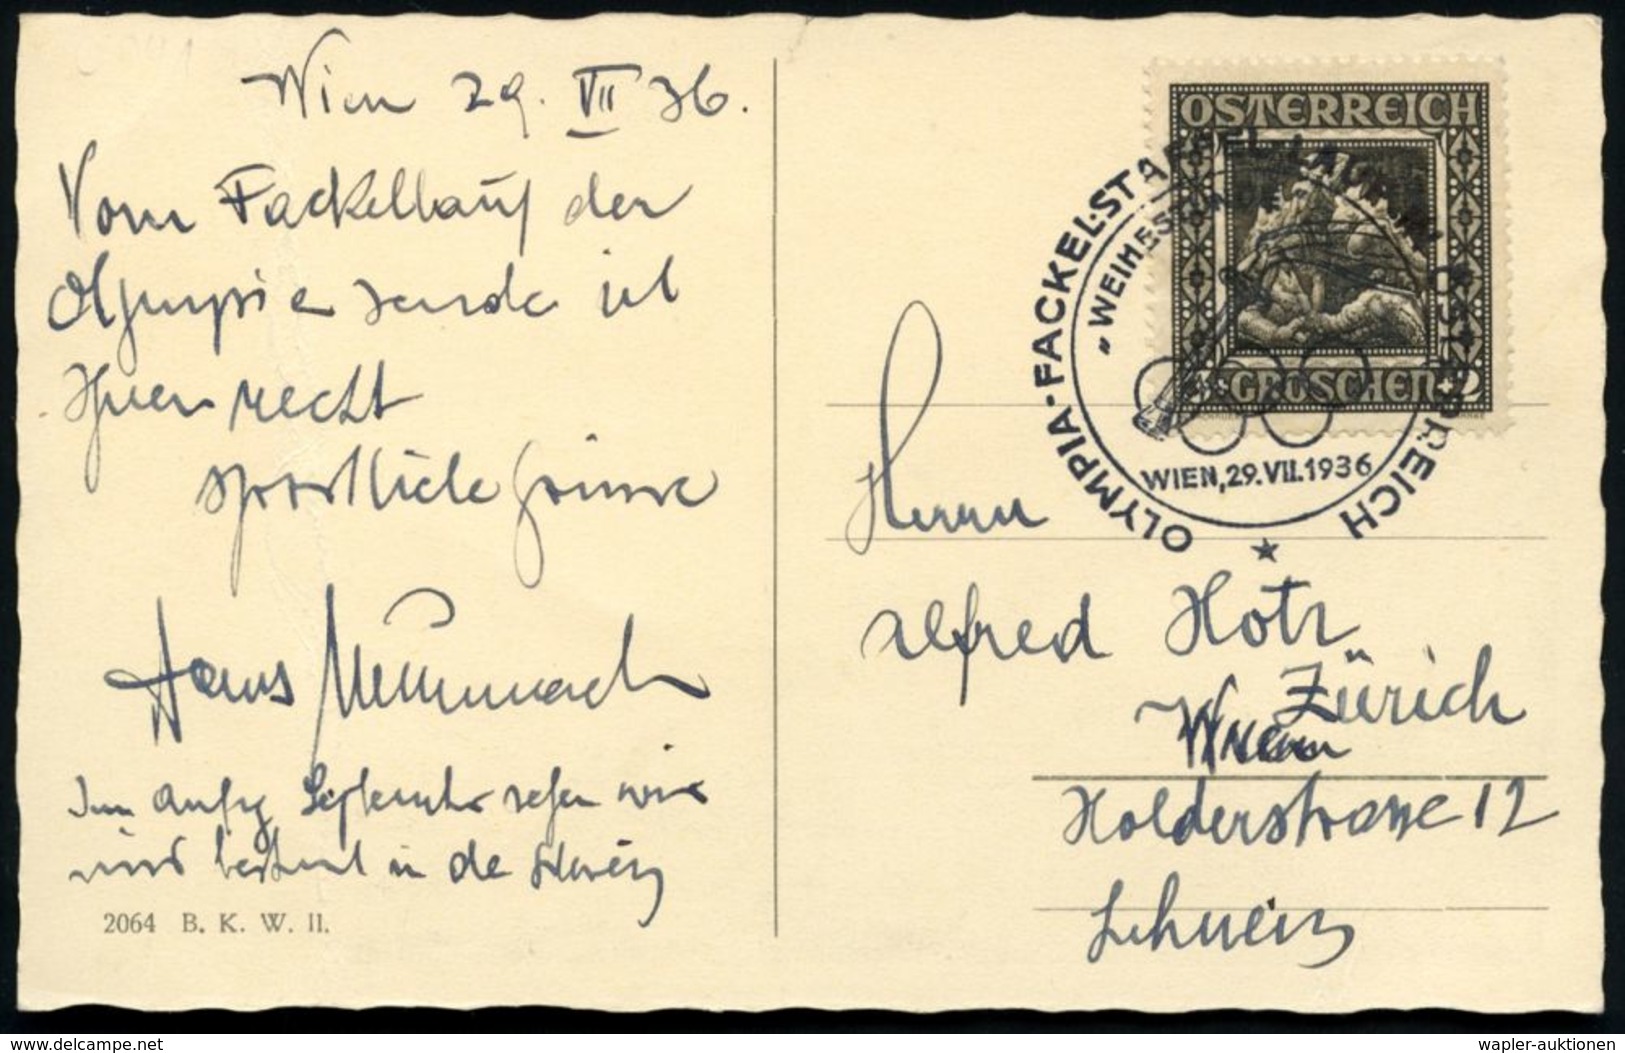 Wien 29. VII 36.
Vom Fackellauf der
Olympia sende ich
Ihnen recht
sportliche Grüsse
Hans
Im anfg September sehen wir
uns bestimt in de Schweiz
2064 B. K. W. II.
ÖSTERREICH
GROSCHEN
OLYMPIA-FACKEL-STAFFEL-LAUF ÖSTERREICH
"WEIHESTUNDE
WIEN, 29.VII.1936
Herrn
Alfred Hotz
Zürich
Wien
Holderstrasse 12
Schweiz
www.delcampe.net
wapler-auktionen